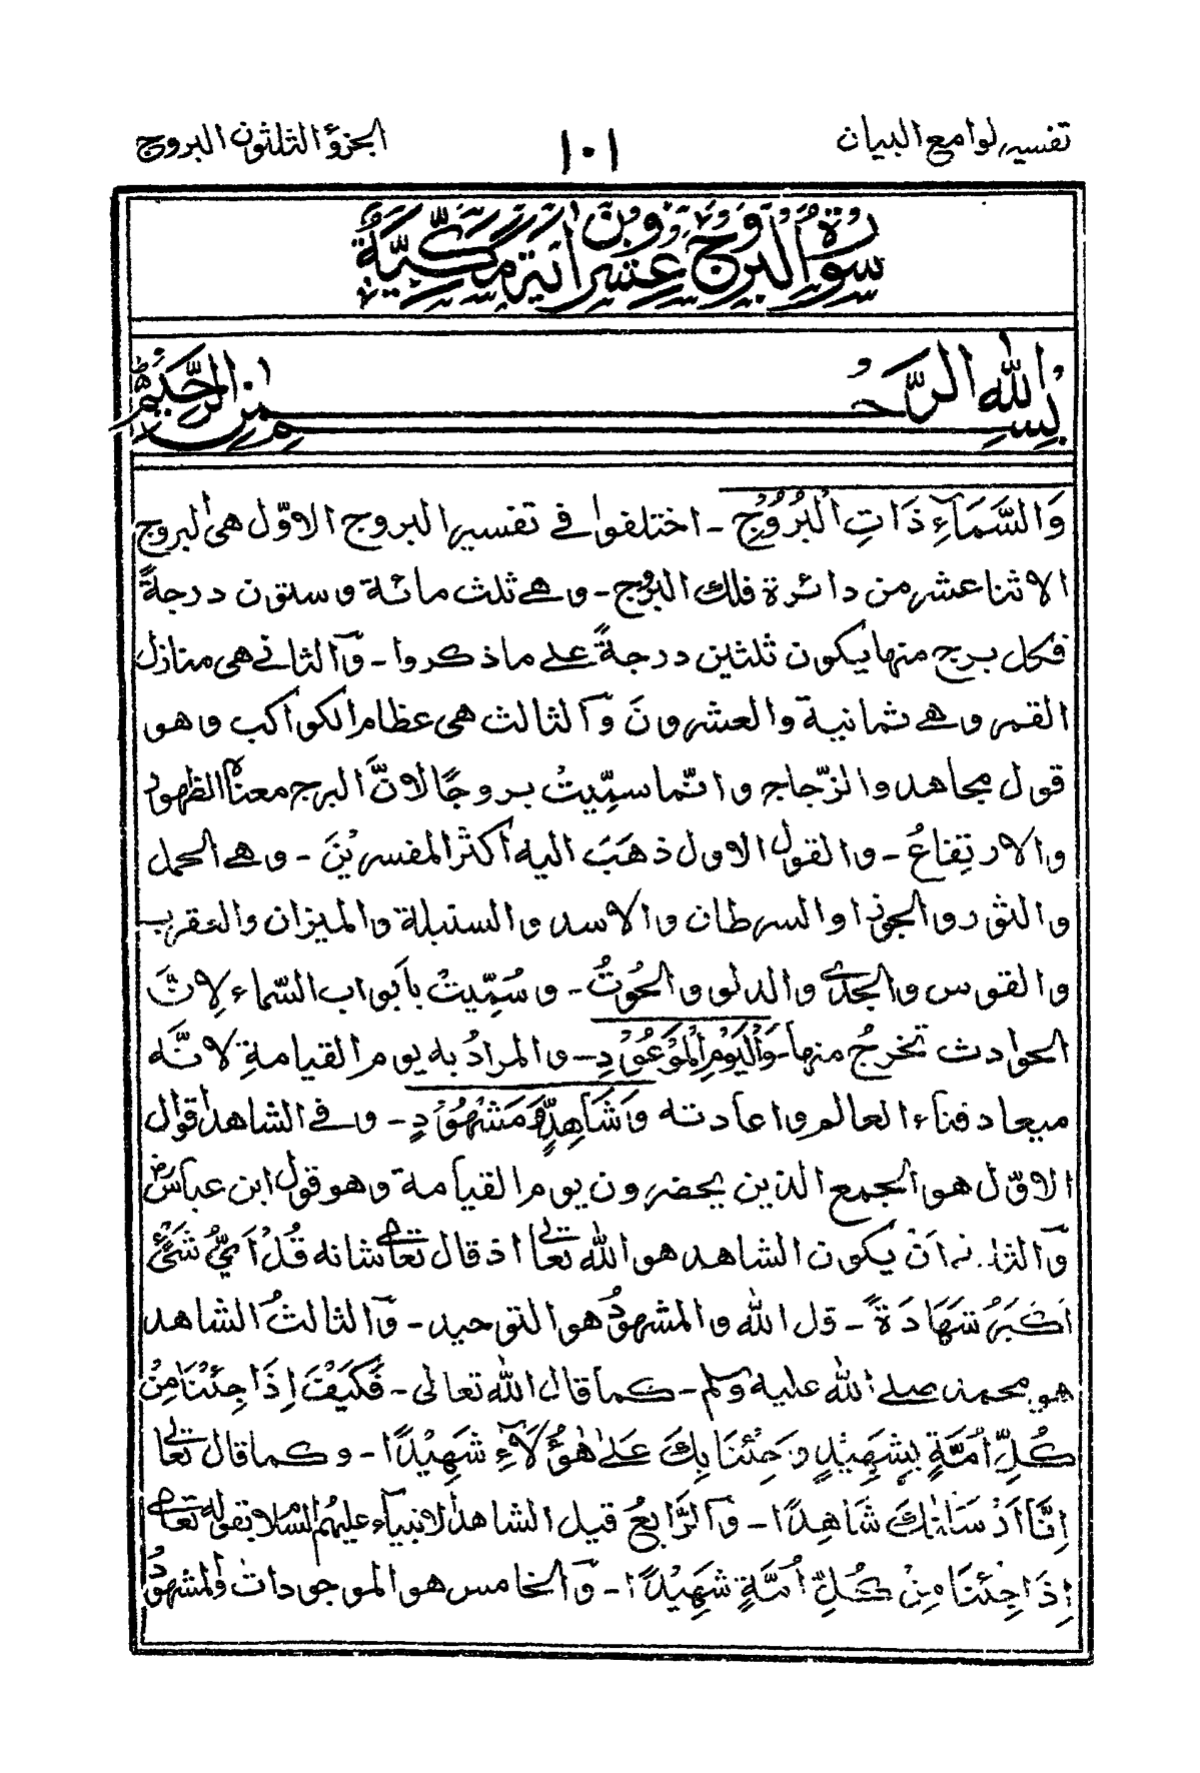 تفسير لوامع البيان
١٠١
الجزؤ الثلثون البروج
سورة البروج وعشرون اٰية مكية
بسم الله الرحمن الرحيم
وَالسَّمَآءِ ذَاتِ الْبُرُوْجِ ـ اختلفوا في تفسير البروج الاوّل هى البروج
الاثنا عشر من دائرة فلك البروج ـ وهے ثلث مائة وستون درجةً
فكل برج منها يكون ثلثين درجةً علے ما ذكروا ـ وآلثانے هى منازل
القمر وهے ثمانية والعشرونَ وآلثالث هى عظام الكواكب وهو
قول مجاهد والزّجاج وانّما سمِّيتْ بروجًا لانَّ البرج معناه الظهور
والارتِفاعُ ـ والقول الاول ذهَبَ اليه اكثر المفسريْنَ ـ وهے الحمل
والثور والجوزا والسرطان والاسد والسنبلة والميزان والعقرب
والقوس والجدے والدلو والحُوتُ ـ وسُمِّيتْ بأبواب السّماء لِانَّ
الحوادث تخرجُ منها ـ وَالْيَوْمِ الْمَوْعُوْدِ ـ والمرادُ به يوم القيامةِ لانَّه
ميعاد فناء العالم واعادته وَشَاهِدٍ وَّمَشْهُوْدٍ ـ وفے الشاهد اقوال
الاوّل هو الجمع الذين يحضرون يوم القيامة وهو قول ابن عباسؓ
وآلثانے اَنْ يكون الشاهد هو الله تعالٰى اذ قال تعالےٰ شانه قُلْ اَيُّ شَيْئٍ
اَكْبَرُ شَهَادَةً ـ قل الله والمشهودُ هو التوحيد ـ وآلثالثُ الشاهد
هو محمد صلے الله عليه وسلم ـ كما قال الله تعالى ـ فَكَيْفَ اِذَا جِئْنَا مِنْ
كُلِّ اُمَّةٍ بِشَهِيْدٍ وَجِئْنَا بِكَ عَلٰى هٰؤُلَآءِ شَهِيْدًا ـ وكما قال تعالٰى
اِنَّا اَرْسَلْنٰكَ شَاهِدًا ـ وآلرَّابعُ قيل الشاهد الانبياء عليهم السلام بقوله تعالےٰ
اِذَا جِئْنَا مِنْ كُلِّ اُمَّةٍ شَهِيْدًا ـ وآلخامس هو الموجودات والمشهودُ